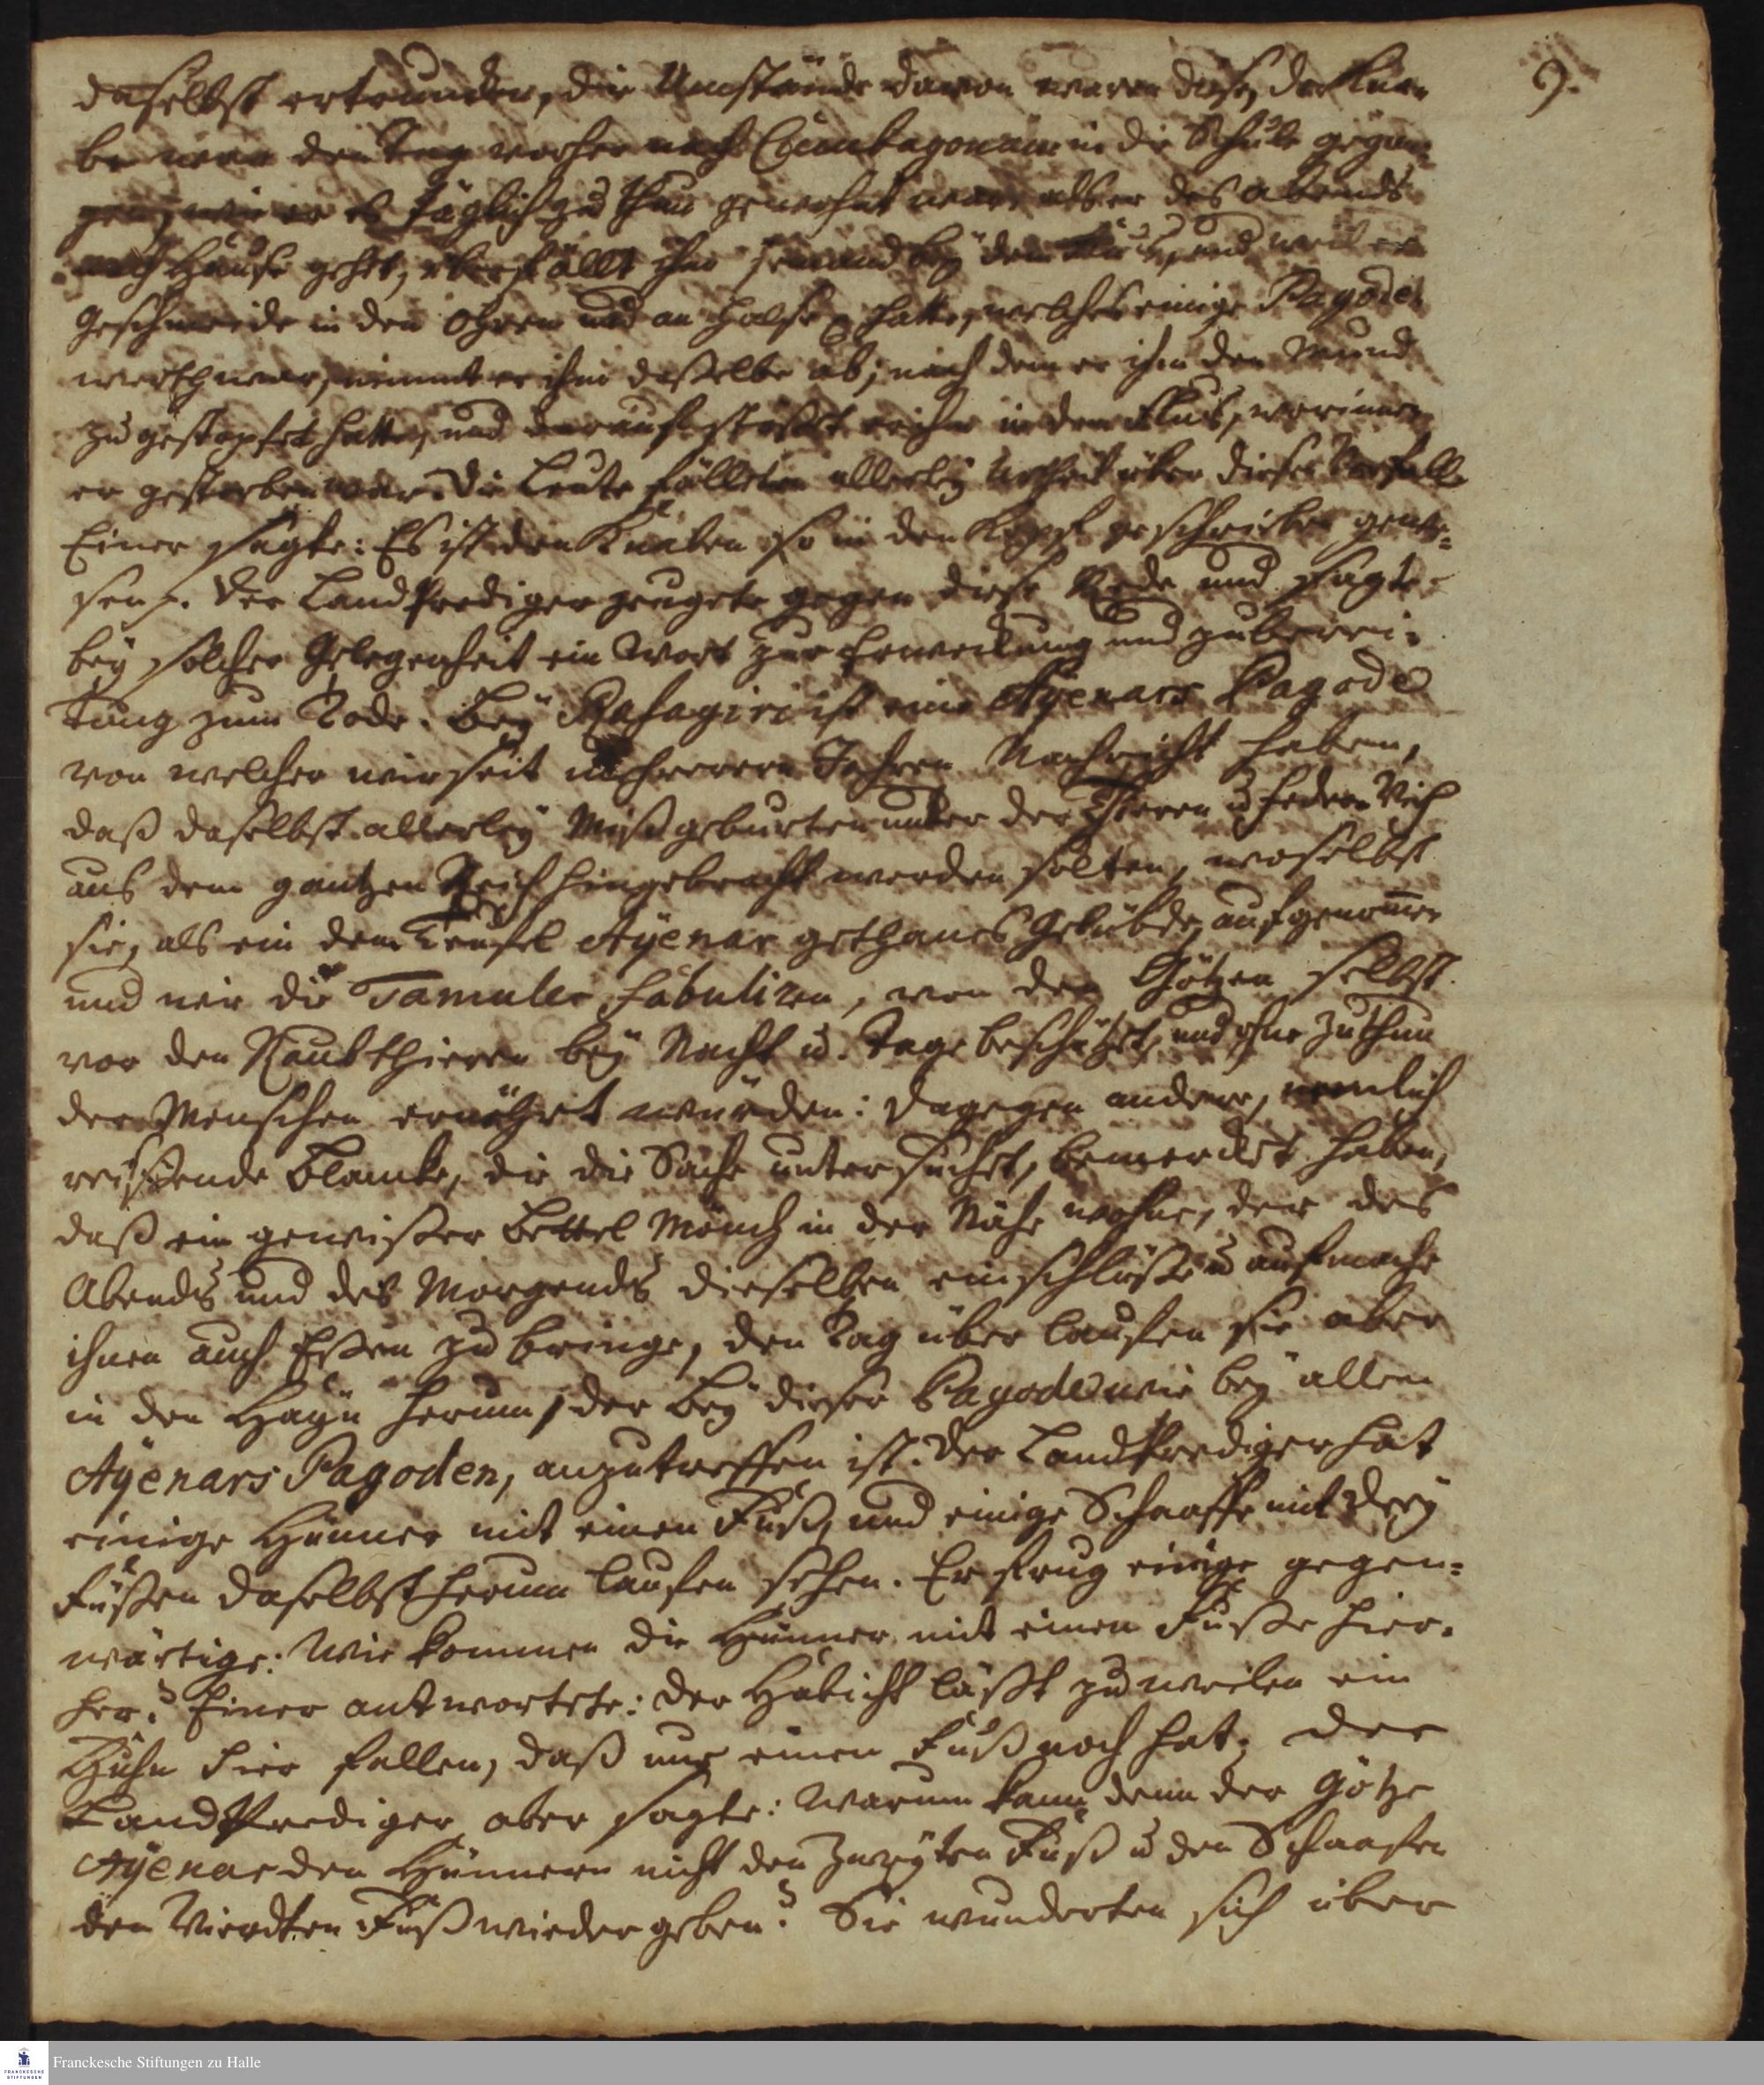 9.
daselbst ertruncken, die Umstände davon waren diese, der Kna-
be war den Tag vorher nach Cumbagonam in die Schule gegan-
gen, wie er es täglich zu thun gewohnt war, als er des abends
nach Hause gehet, überfällt ihn jemand bey dem Fluß, und weil er
Geschmeide in den Ohren und am Halse hatte, welches einige Pagoden
werth war, nimmt er ihm daßelbe ab; nach dem er ihm den Mund
zu gestopfet hatte, und darauf stoßet er ihn in den Fluß, worinnen
er gestorben war. Die Leute fälleten allerley Urtheil über diesen Vorfall.
Einer sagte: Es ist dem Knaben so in den Kopf geschrieben gewe-
sen. Der LandPrediger zeugete gegen diese Rede und sagte
bey solcher Gelegenheit ein Wort zur Erweckung und zuberei-
tung zum Tode. Bey Rasagiri ist eine Ayenars Pagode
von welcher wir seit mehreren Jahren Nachricht haben,
daß daselbst allerley Mißgeburten unter den Thieren u Feder Vieh
aus dem gantzen Reich hingebracht werden solten, woselbst
sie, als ein dem Teufel Ayenar gethanes Gelübde, aufgenom̄en
und wie die Tamuler fabuliren, von den Götzen selbst
vor den Raubthieren bey Nacht u. Tage beschützet, und ohne Zuthun
der Menschen ernährt würden: dagegen andere, nemlich
reißende Blancke, die die Sache untersuchet, bemercket haben,
daß ein gewißer Bettel Mönch in der Nähe wohne, der des
Abends und des Morgends dieselben einschlüße u aufmache
ihnen auch Eßen zu bringe, den Tag über laufen sie aber
in den Hayn herum, der bey dieser Pagode wie bey allen
Ayenars Pagoden, anzutreffen ist. Der LandPrediger hat
einige Hüner mit einen Fuß, und einige Schaaffe mit drey
Füßen daselbst herum laufen sehen. Er frug einige gegen-
wärtige: Wie kommen die Hünner mit einen Fuße hier-
her? Einer antwortete: der Habicht läßt zuweilen ein
Huhn hier fallen, daß nur einen Fuß noch hat; der
LandPrediger aber sagte: Warum kann denn der Götze
Ayenar den Hünnern nicht den Zweyten Fuß u den Schaafen
den Vierdten Fuß wieder geben? Sie wunderten sich über
Franckesche Stiftungen zu Halle
FRANCKESCHE
STIFTUNGEN